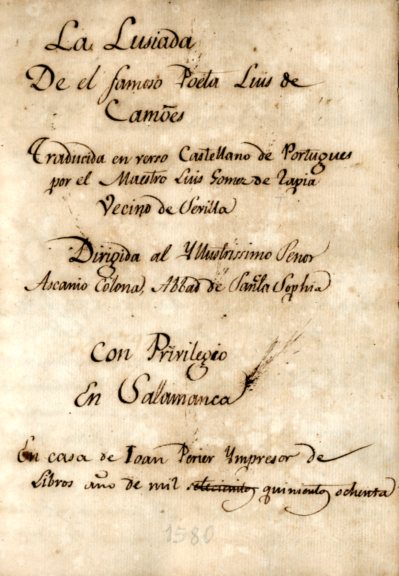 La Lusiada
De el famoso Poeta Luis de
Camões
Traducida en verso Castellano de Portugues
por el Maestro Luis Gomez de Tapia
Vecino de Sevilla
Dirigida al Yllustrissimo Senor
Ascanio Colona, Abbad de Santa Sophia
Con Privilegio
En Sallamanca
En casa de Ioan Perier Ympresor de
Libros año de mil setecientos quinientos ochenta
1580